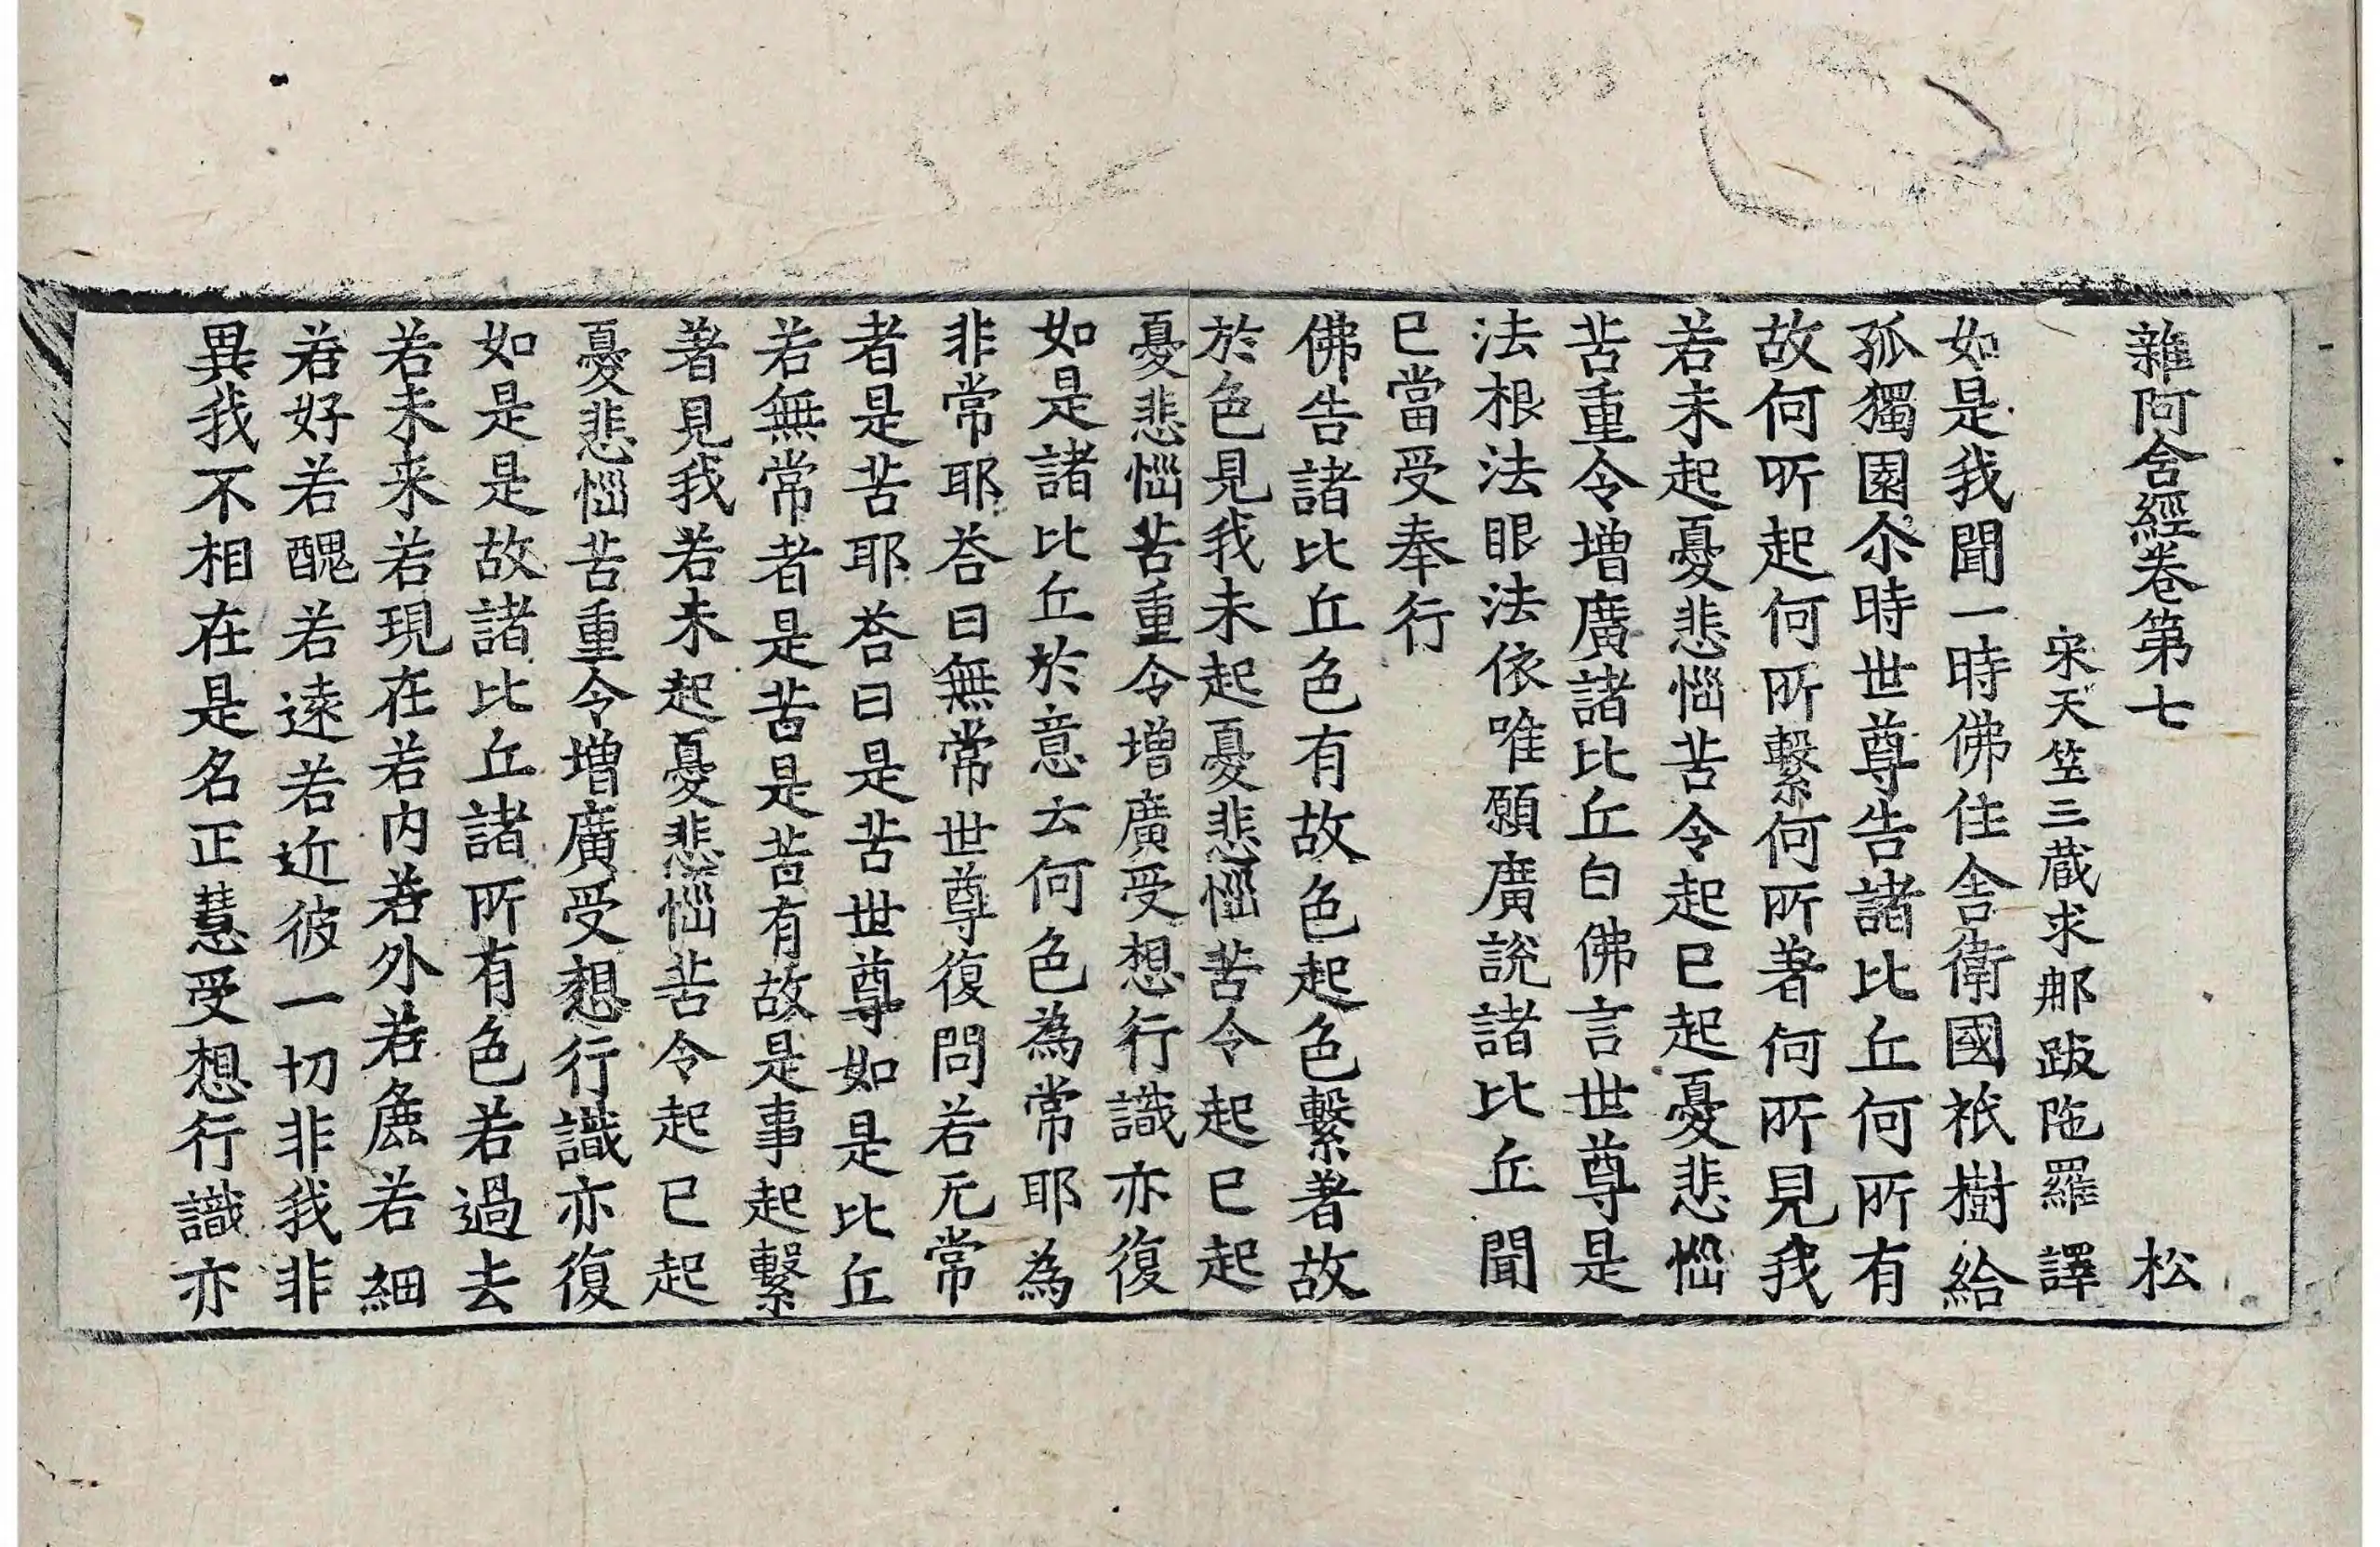 雜阿含經卷第七 松
宋天竺三蔵求那跋陁羅 譯
如是我聞一時佛住舍衛國祇樹給
孤獨園尒時世尊告諸比丘何所有
故何所起何所繫何所著何所見我
若未起憂悲惱苦令起已起憂悲惱
苦重令增廣諸比丘白佛言世尊是
法根法眼法依唯願廣說諸比丘聞
已當受奉行
佛告諸比丘色有故色起色繫著故
於色見我未起憂悲惱苦令起已起
憂悲惱苦重令增廣受想行識亦復
如是諸比丘於意云何色為常耶為
非常耶荅曰無常世尊復問若无常
者是苦耶荅曰是苦世尊如是比丘
若無常者是苦是苦有故是事起繫
著見我若未起憂悲惱苦令起已起
憂悲惱苦重令增廣受想行識亦復
如是是故諸比丘諸所有色若過去
若未来若現在若内若外若麁若細
若好若醜若逺若近彼一切非我非
異我不相在是名正慧受想行識亦